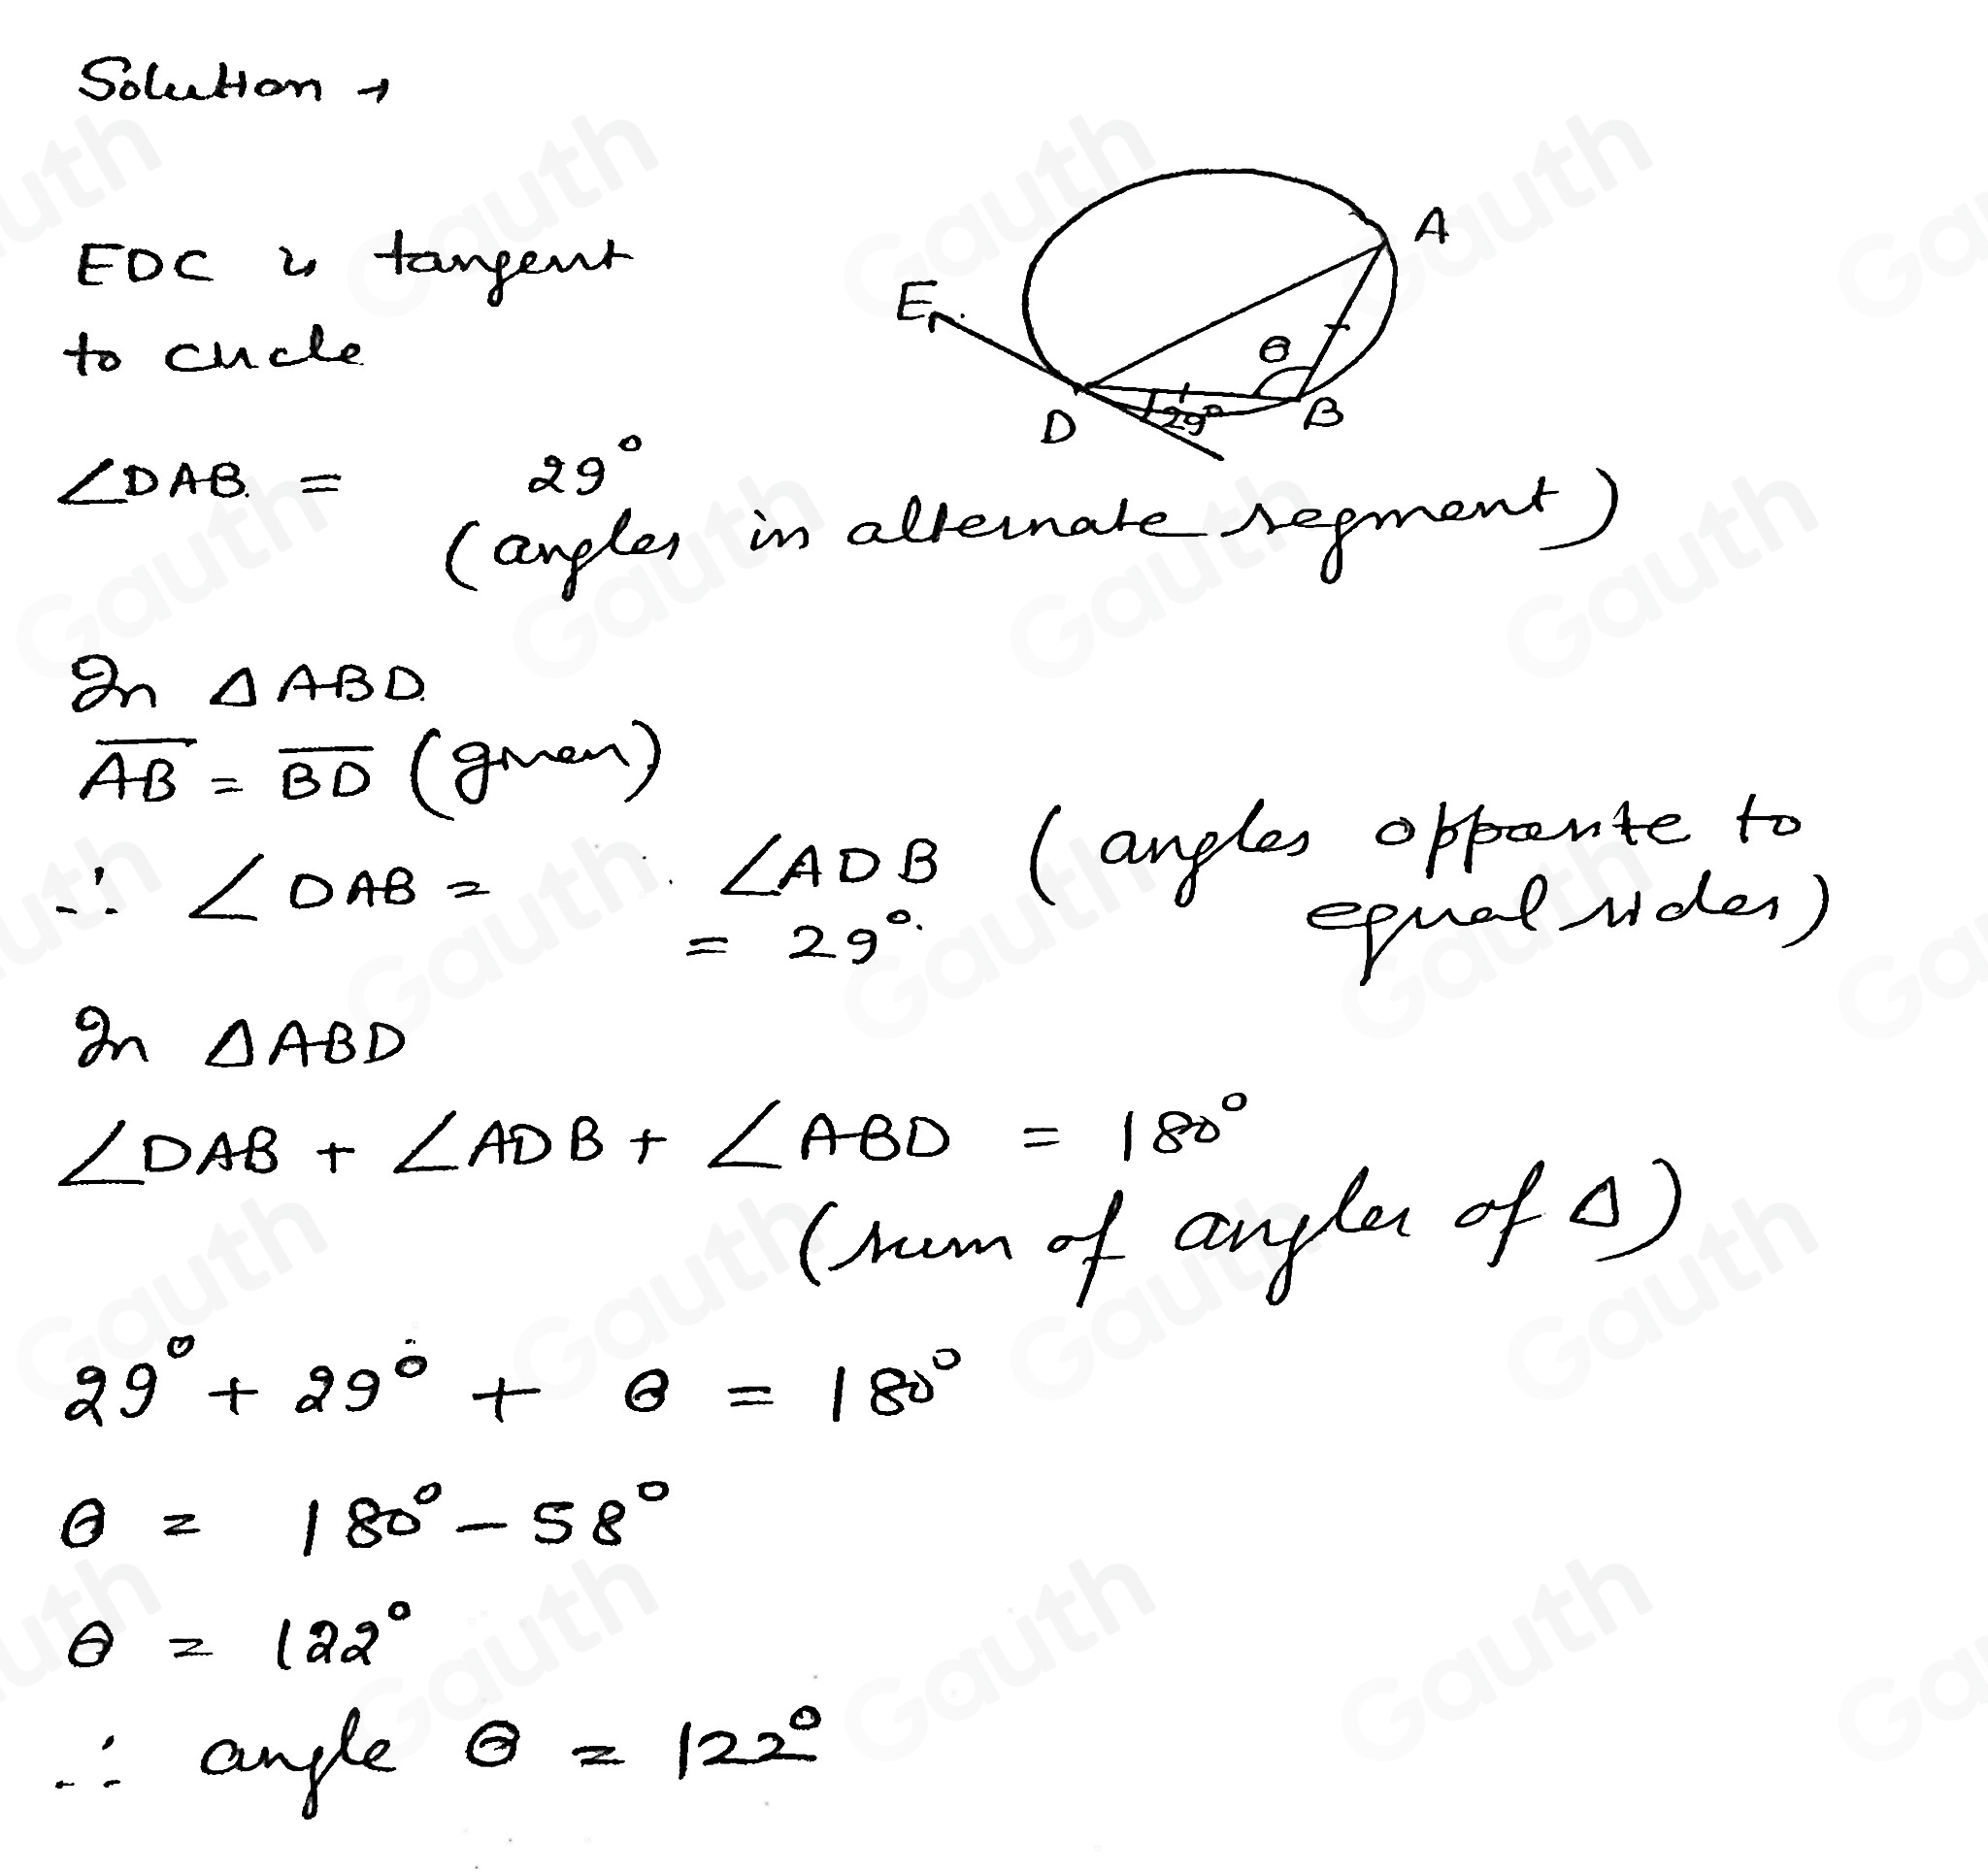 Solution →
EDC is tangent
to circle
A
E
θ
D
29°
B
∠DAB = 29°
(angles in alternate segment)
In △ ABD
AB = BD (given)
∴ ∠DAB = ∠ADB (angles opposite to
= 29° equal sides)
In △ABD
∠DAB + ∠ADB + ∠ABD = 180°
(sum of angles of △)
29° + 29° + θ = 180°
θ = 180° - 58°
θ = 122°
∴ angle θ = 122°
Gauth